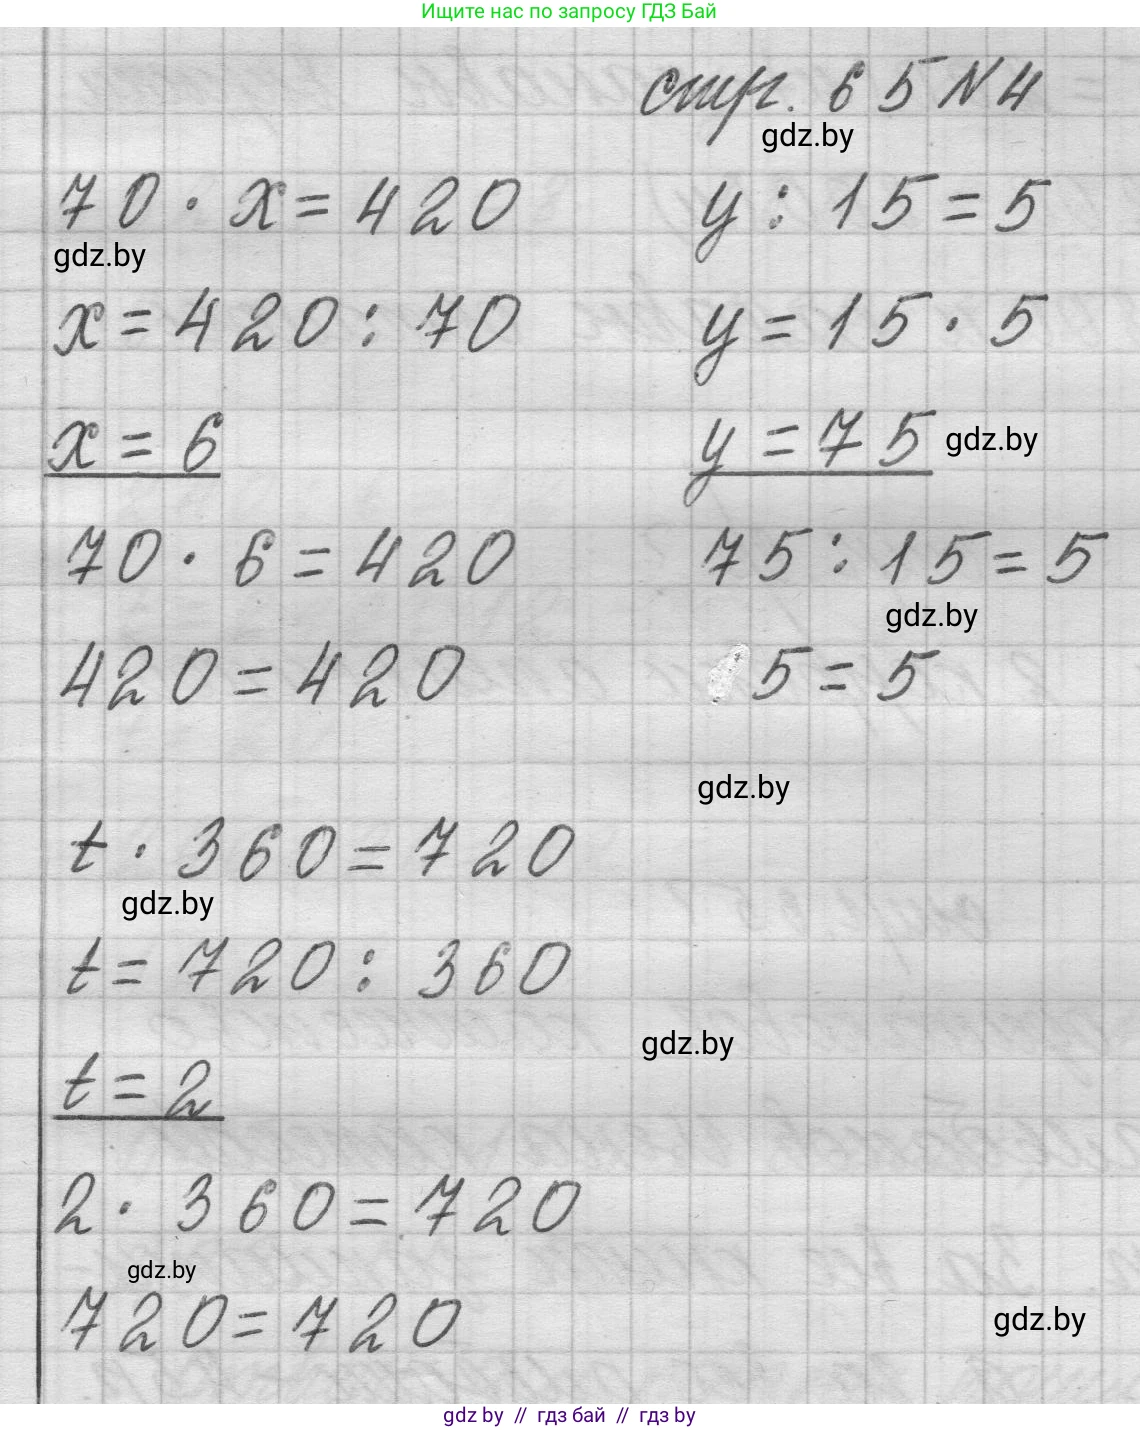 Ищите нас по запросу ГДЗ Бай
стр. 65 N 4
gdz.by
70 · x = 420
gdz.by
x = 420 : 70
x = 6
70 · 6 = 420
420 = 420
y : 15 = 5
y = 15 · 5
y = 75
gdz.by
75 : 15 = 5
gdz.by
5 = 5
gdz.by
t · 360 = 720
gdz.by
t = 720 : 360
gdz.by
t = 2
2 · 360 = 720
gdz.by
720 = 720
gdz.by
gdz by // гдз бай // гдз by